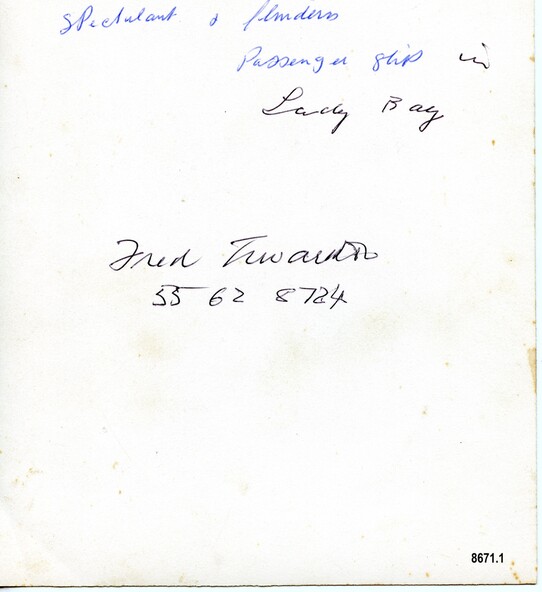 Speculant & flinders
Passenger ship in
Lady Bay
Fred
55 62 8724
8671.1